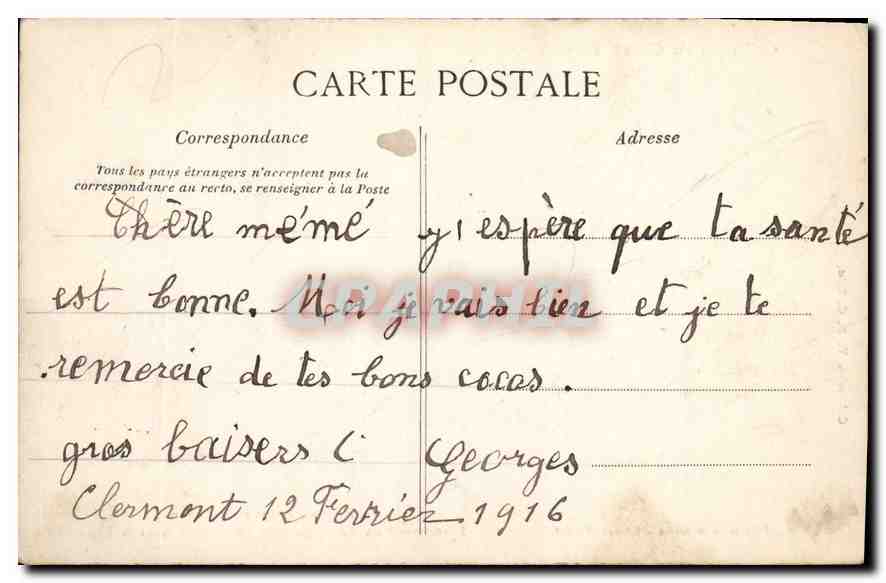 CARTE POSTALE
Correspondance
Adresse
Tous les pays étrangers n'acceptent pas la
correspondance au recto, se renseigner à la Poste
Chère mémé j'espère que ta santé
est bonne. Moi je vais bien et je te
remercie de tes bons cocos.
gros baisers Georges
Clermont 12 Ferrier 1916
CPAPHIL